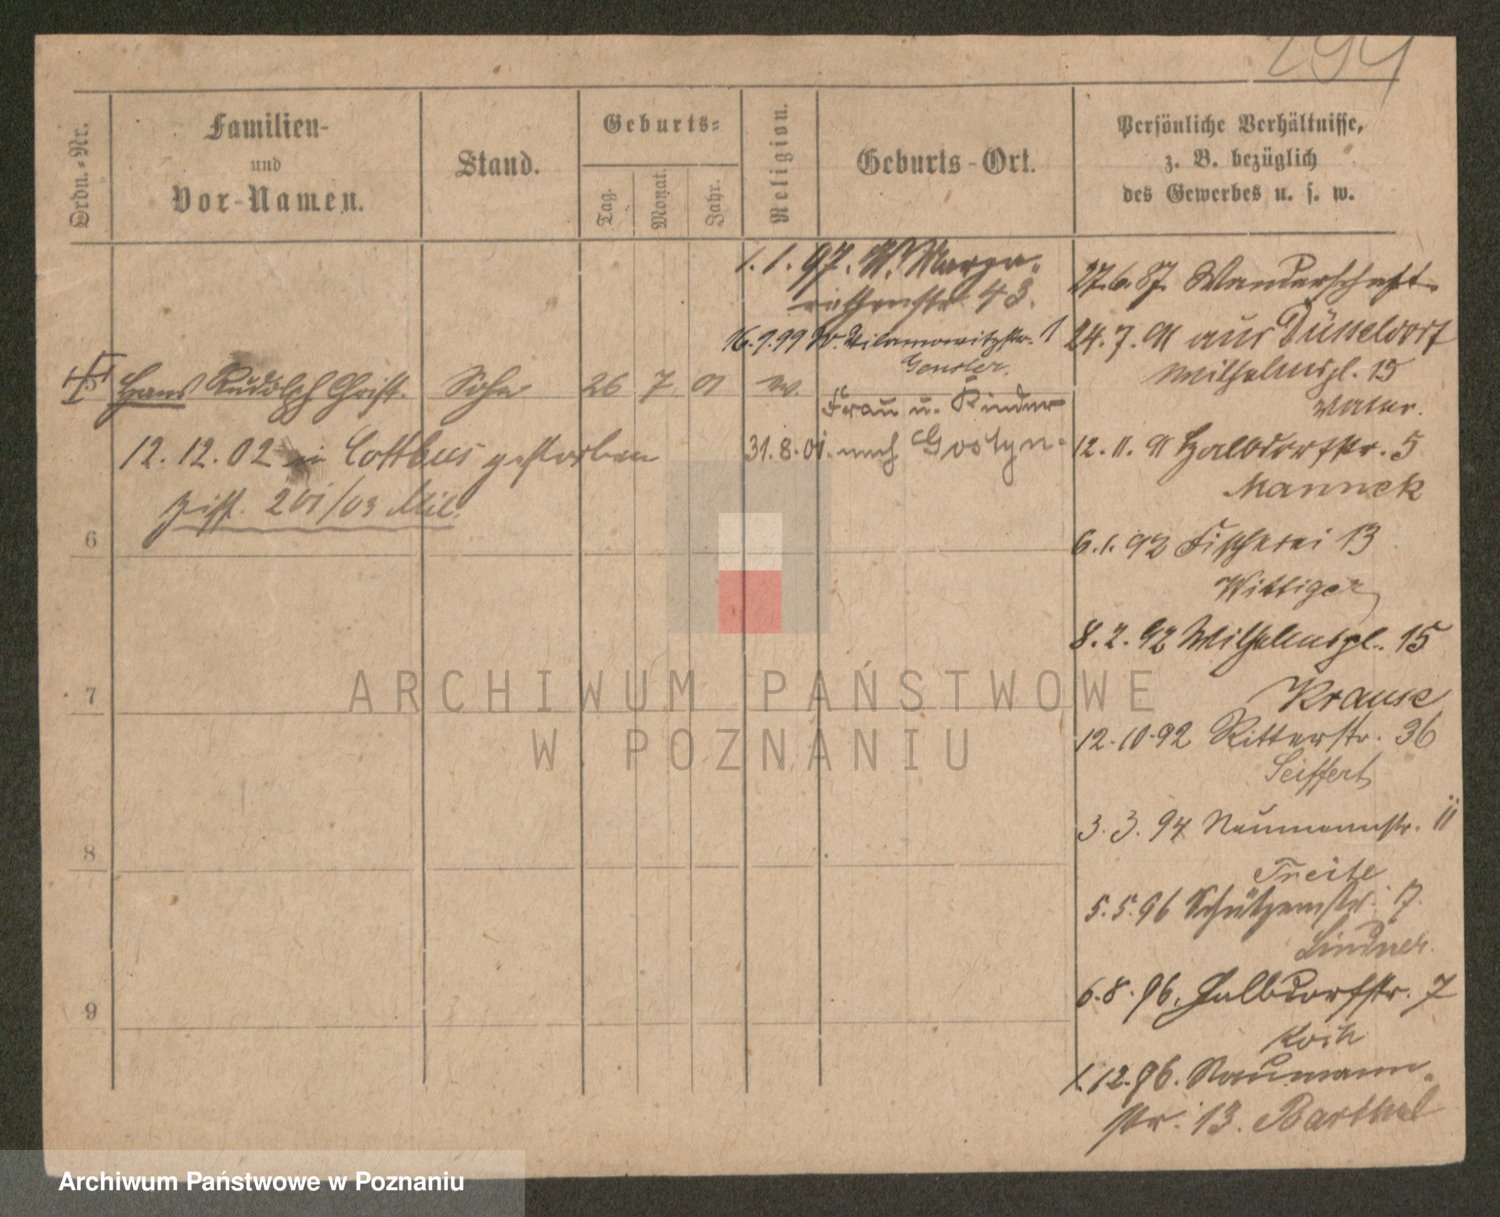 294
Ordn.-Nr.
Familien-
und
Vor-Namen.
Stand.
Geburts-
Tag.
Monat.
Jahr.
Religion.
Geburts-Ort.
Persönliche Verhältnisse,
z. B. bezüglich
des Gewerbes u. s. w.
1.1.97. W. Marga-
rethenstr. 43.
16.9.99 W. Wilamowitzstr. 1
Gensler.
Hans Rudolph Christ. Sohn 26 7 01 w.
Frau u. Kinder
31.8.01. nach Gostyn.
12.12.02 in Cottbus gestorben
201/03 Mil.
27.6.87 Wanderschaft
24.7.91 aus Düsseldorf
Wilhelmspl. 15
Vater.
12.11.91 Halbdorfstr. 5
Manneck
6.1.92 Fischerei 13
Wittiger
8.2.92 Wilhelmspl. 15
Krause
12.10.92 Ritterstr. 36
Seiffert
3.3.94 Naumannstr. 11
Treite
5.5.96 Schützenstr. 7.
Lindner.
6.8.96. Halbdorfstr. 7
Koch
1.12.96. Naumann-
str. 13. Barthel
6
7
8
9
ARCHIWUM PAŃSTWOWE
W POZNANIU
Archiwum Państwowe w Poznaniu